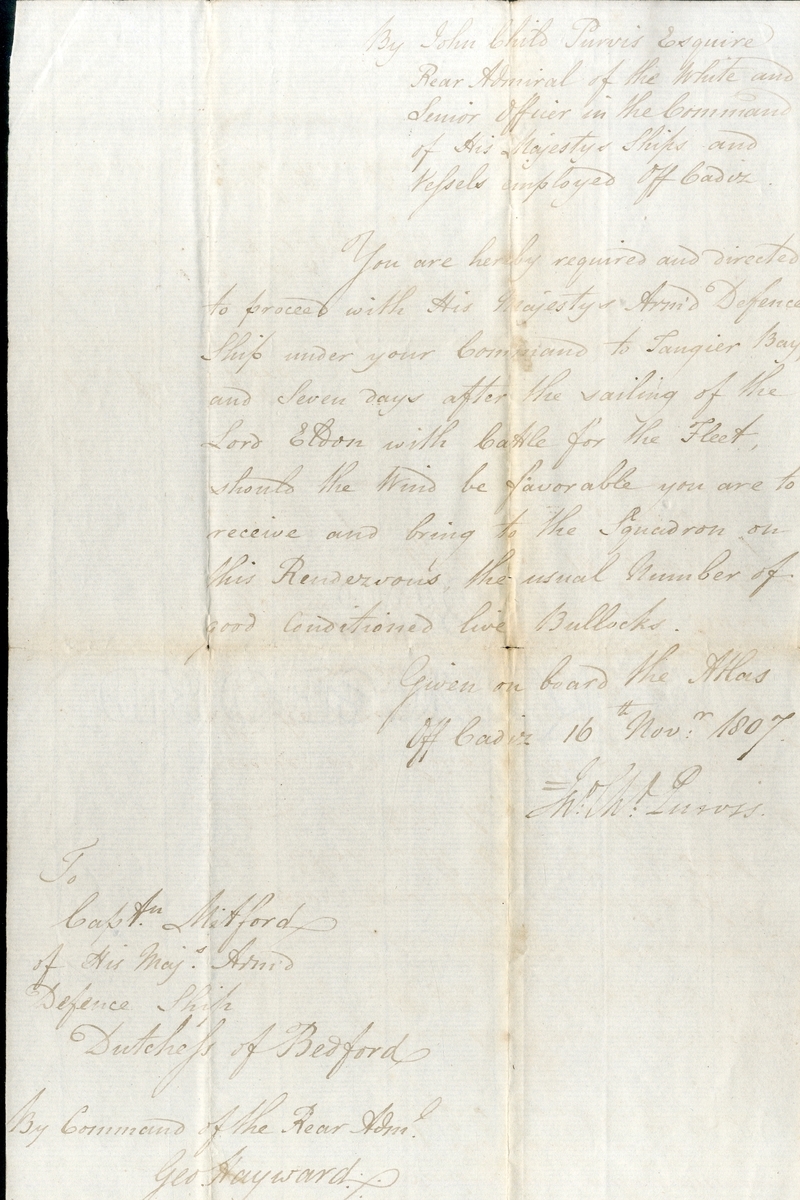 By John Child Purvis Esquire
Rear Admiral of the White and
Senior Officer in the Command
of His Majestys Ships and
Vessels employed Off Cadiz.
You are hereby required and directed
to proceed with His Majestys Arm'd Defence
Ship under your Command to Tangier Bay,
and Seven days after the sailing of the
Lord Eldon with Cattle for the Fleet,
should the Wind be favorable you are to
receive and bring to the Squadron on
this Rendezvous, the usual Number of
good Conditioned live Bullocks.
Given on board the Atlas
Off Cadiz 16th Novr. 1807.
Jno. Chd. Purvis.
To
Captn. Mitford
of His Majs. Arm'd
Defence Ship
Dutchess of Bedford
By Command of the Rear Adml.
Geo Hayward